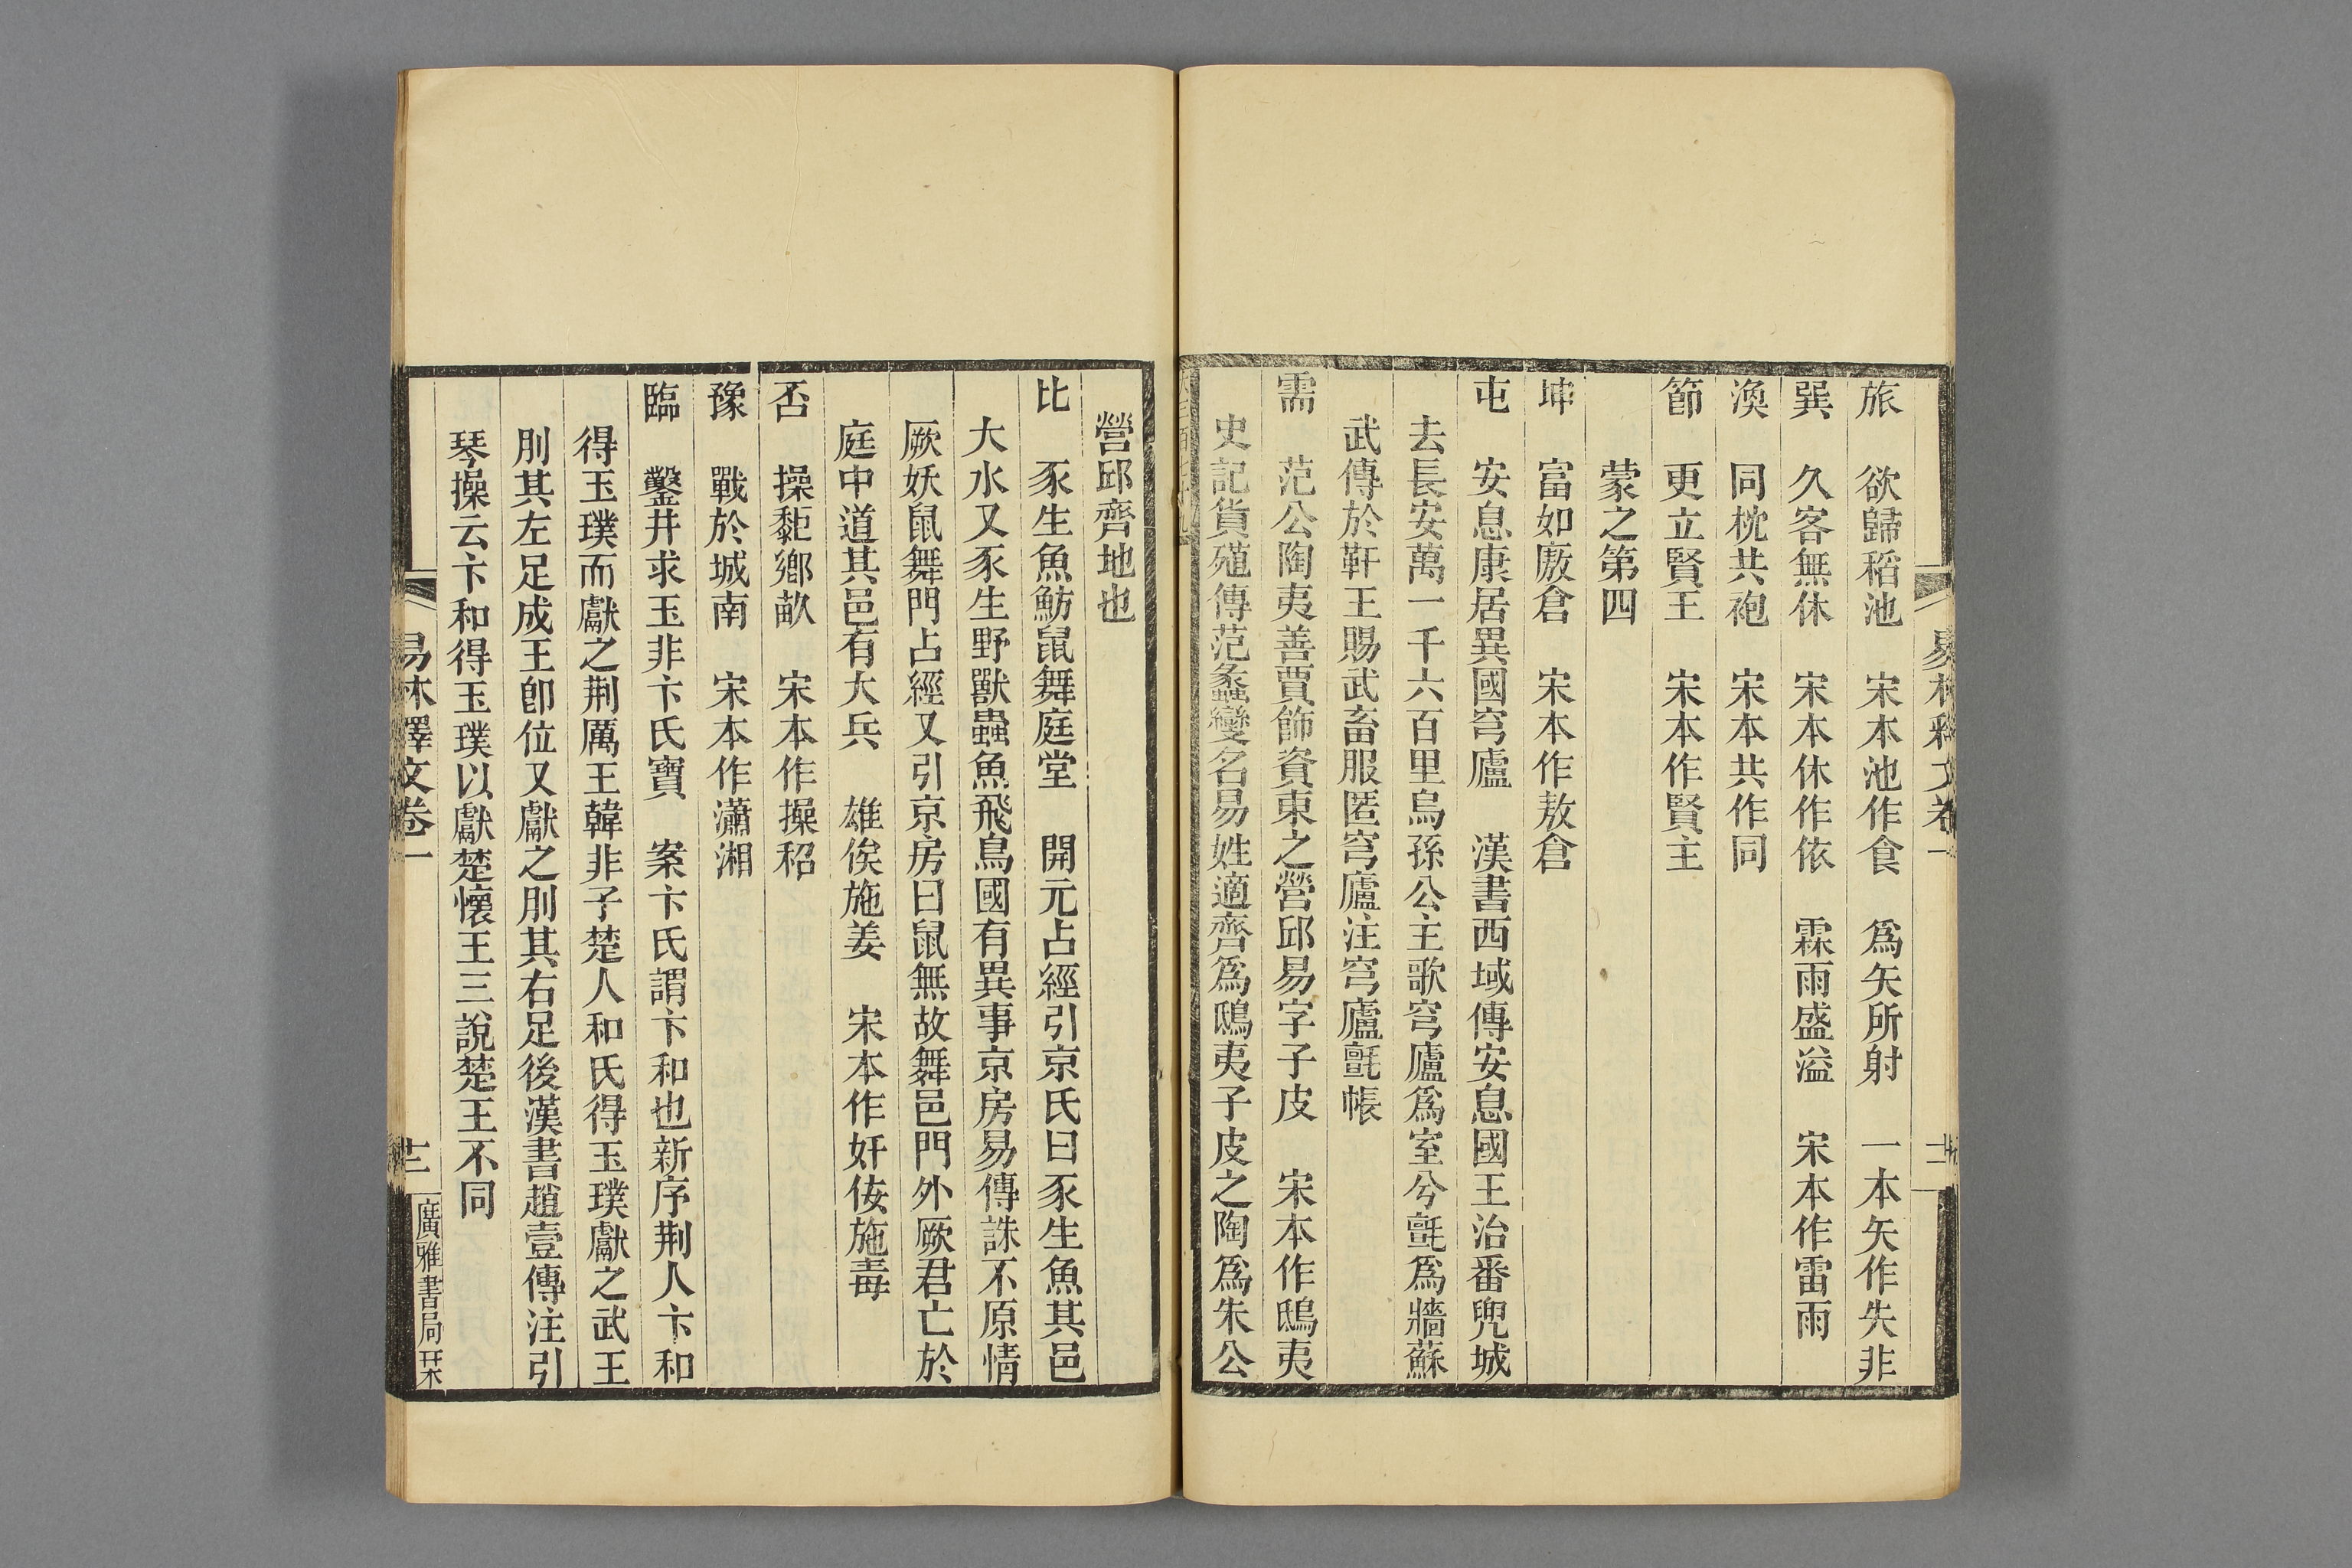 旅　欲歸稻池　宋本池作食　爲矢所射　一本矢作失非
巽　久客無休　宋本休作依　霖雨盛溢　宋本作雷雨
渙　同枕共袍　宋本共作同
節　更立賢王　宋本作賢主
蒙之第四
坤　富如廒倉　宋本作敖倉
屯　安息康居異國穹廬　漢書西域傳安息國王治番兜城
去長安萬一千六百里烏孫公主歌穹廬爲室兮氈爲牆蘇
武傳於靬王賜武畜服匿穹廬注穹廬氈帳
需　范公陶夷善賈飾資東之營邱易字子皮　宋本作鴟夷
史記貨殖傳范蠡變名易姓適齊爲鴟夷子皮之陶爲朱公
營邱齊地也
比　豕生魚魴鼠舞庭堂　開元占經引京氏曰豕生魚其邑
大水又豕生野獸蟲魚飛鳥國有異事京房易傳誅不原情
厥妖鼠舞門占經又引京房曰鼠無故舞邑門外厥君亡於
庭中道其邑有大兵　雄俟施姜　宋本作奸佞施毒
否　操秬鄉畝　宋本作操稆
豫　戰於城南　宋本作瀟湘
臨　鑿井求玉非卞氏寶　案卞氏謂卞和也新序荆人卞和
得玉璞而獻之荆厲王韓非子楚人和氏得玉璞獻之武王
刖其左足成王卽位又獻之刖其右足後漢書趙壹傳注引
琴操云卞和得玉璞以獻楚懷王三說楚王不同
易林釋文卷一
廣雅書局栞